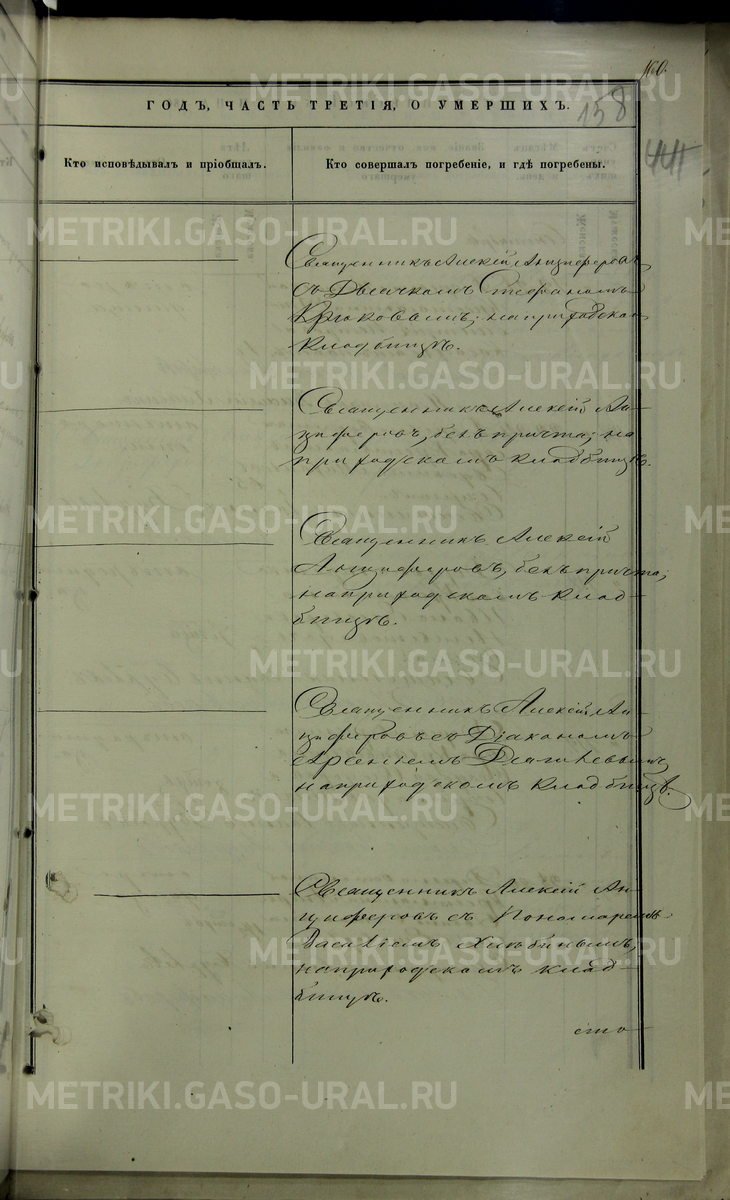 160.
ГОДЪ, ЧАСТЬ ТРЕТІЯ, О УМЕРШИХЪ.
158
441
Кто исповѣдывалъ и пріобщалъ.
Кто совершалъ погребеніе, и гдѣ погребены.
Священникъ Алексій Анциферовъ
съ Дьячкомъ Стефаномъ
Крюковымъ; на приходском
кладбищѣ.
Священникъ Алексій Ан-
циферовъ, безъ причта; на
приходскомъ кладбищѣ.
Священникъ Алексій
Анциферовъ, безъ причта;
на приходскомъ клад-
бищѣ.
Священникъ Алексій Ан-
циферовъ съ Діакономъ
Арсеніемъ
на приходскомъ кладбищѣ.
Священникъ Алексій Ан-
циферовъ съ Пономаремъ
Василіемъ
на приходскомъ клад-
бищѣ.
METRIKI.GASO-URAL.RU